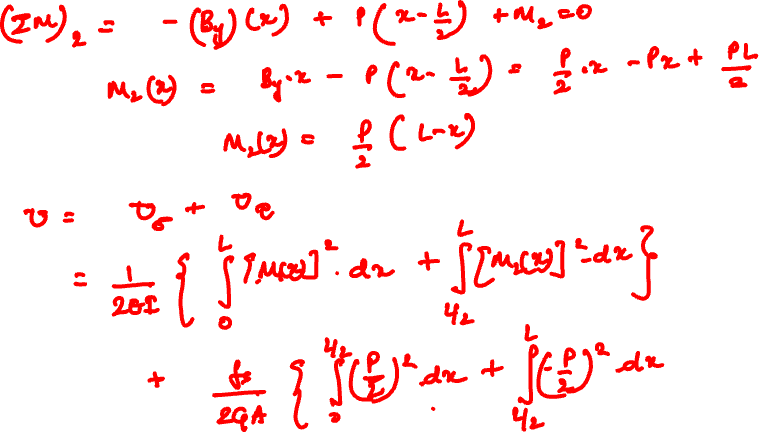 (ΣM)₂ = - (By)(x) + P(x - L/2) + M₂ = 0
M₂(x) = By·x - P(x - L/2) = P/2 ·x - Px + PL/2
M₂(x) = P/2 (L-x)
υ = υ_σ + υ_τ
= 1/2EI { ∫₀ᴸ [M(x)]² · dx + ∫_{L/2}^{L} [M₂(x)]² · dx }
+ fs/2GA { ∫₀^{L/2} (P/2)² · dx + ∫_{L/2}^{L} (-P/2)² · dx